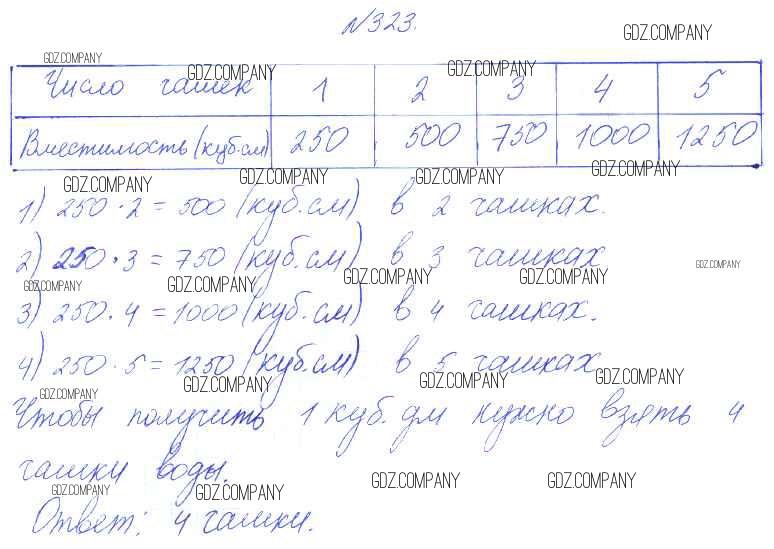 №323.
GDZ.COMPANY
GDZ.COMPANY
GDZ.COMPANY GDZ.COMPANY
Число чашек 1 2 3 4 5
Вместимость (куб.см) 250 500 750 1000 1250
GDZ.COMPANY GDZ.COMPANY GDZ.COMPANY GDZ.COMPANY
1) 250 · 2 = 500 (куб.см) в 2 чашках.
2) 250 · 3 = 750 (куб.см) в 3 чашках
GDZ.COMPANY GDZ.COMPANY GDZ.COMPANY GDZ.COMPANY GDZ.COMPANY
3) 250 · 4 = 1000 (куб.см) в 4 чашках.
4) 250 · 5 = 1250 (куб.см) в 5 чашках
GDZ.COMPANY GDZ.COMPANY GDZ.COMPANY GDZ.COMPANY
Чтобы получить 1 куб. дм нужно взять 4
чашки воды.
GDZ.COMPANY GDZ.COMPANY GDZ.COMPANY GDZ.COMPANY
Ответ: 4 чашки.